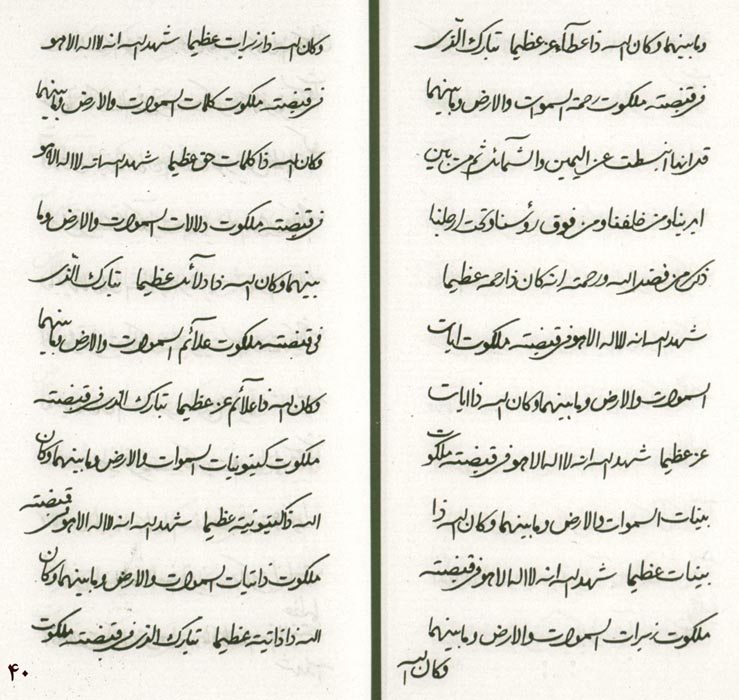 وما بينهما وكان الله ذا عطاء عز عظيما تبارك الذي
في قبضته ملكوت رحمة السموات والارض وما بينهما
قد انها انبسطت عن اليمين والشمائل ثم من بين
ايدينا ومن خلفنا ومن فوق رؤسنا وتحت ارجلنا
ذكر من فضل الله ورحمته انه كان ذا رحمة عظيما
شهد الله انه لا اله الا هو في قبضته ملكوت ايات
السموات والارض وما بينهما وكان الله ذا ايات
عز عظيما شهد الله انه لا اله الا هو في قبضته ملكوت
بينات السموات والارض وما بينهما وكان الله ذا
بينات عظيما شهد الله انه لا اله الا هو في قبضته
ملكوت زبرات السموات والارض وما بينهما
وكان الله
وكان الله ذا زبرات عظيما شهد الله انه لا اله الا هو
في قبضته ملكوت كلمات السموات والارض وما بينهما
وكان الله ذا كلمات حق عظيما شهد الله انه لا اله الا هو
في قبضته ملكوت دلالات السموات والارض وما
بينهما وكان الله ذا دلائل عظيما تبارك الذي
في قبضته ملكوت علائم السموات والارض وما بينهما
وكان الله ذا علائم عز عظيما تبارك الذي في قبضته
ملكوت كينونيات السموات والارض وما بينهما وكان
الله ذا كينونية عظيما شهد الله انه لا اله الا هو في قبضته
ملكوت ذاتيات السموات والارض وما بينهما وكان
الله ذا ذاتية عظيما تبارك الذي في قبضته ملكوت
۴۰